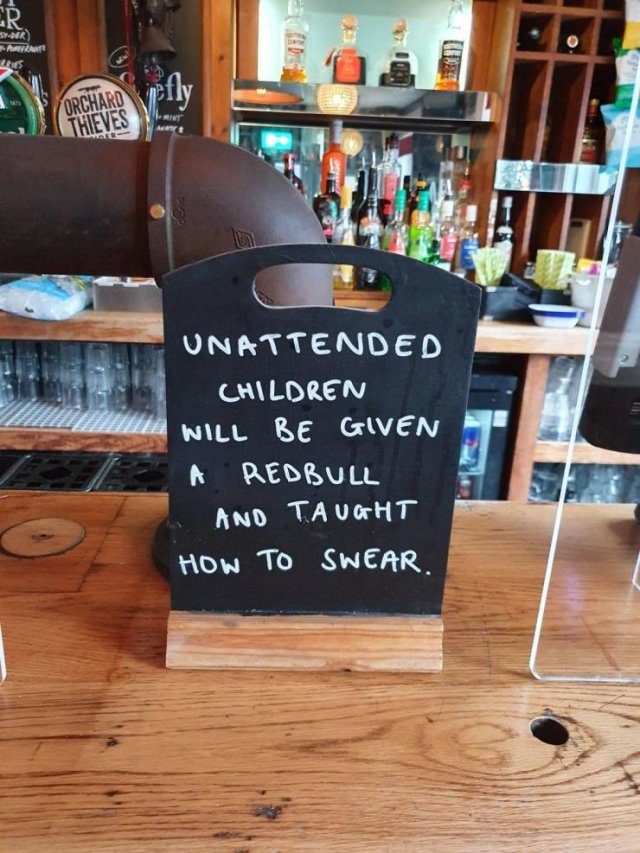 ORCHARD
THIEVES
UNATTENDED
CHILDREN
WILL BE GIVEN
A REDBULL
AND TAUGHT
HOW TO SWEAR.